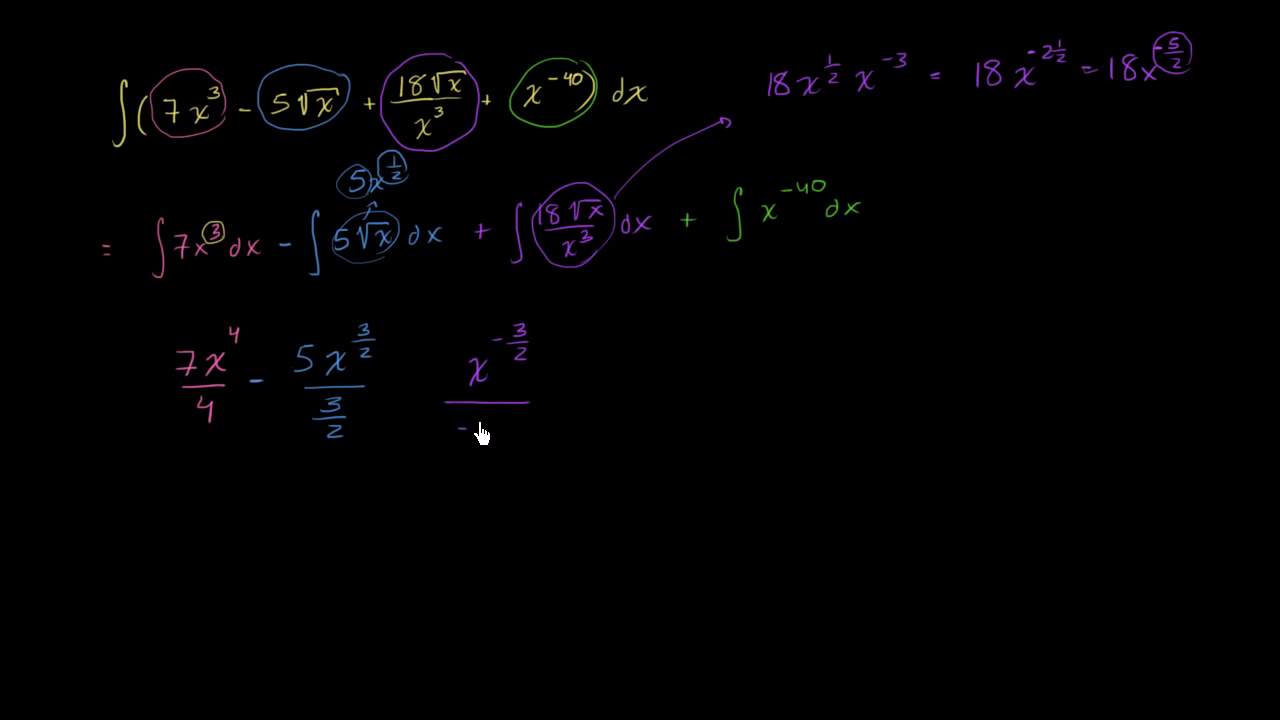 ∫(7x³ - 5√x + 18√x/x³ + x⁻⁴⁰) dx
18x^(1/2) x⁻³ = 18x^(-2 1/2) = 18x^(-5/2)
5x^(1/2)
= ∫7x³ dx - ∫5√x dx + ∫18√x/x³ dx + ∫x⁻⁴⁰ dx
7x⁴/4 - 5x^(3/2)/(3/2) x^(-3/2)/-